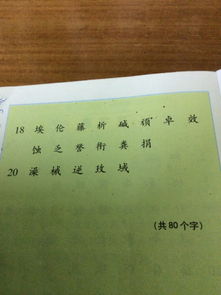 18 埃 伦 藤 析 碱 顽 卓 效
蚀 乏 誉 衔 粪 捐
20 澡 械 逆 玫 域
(共80个字)